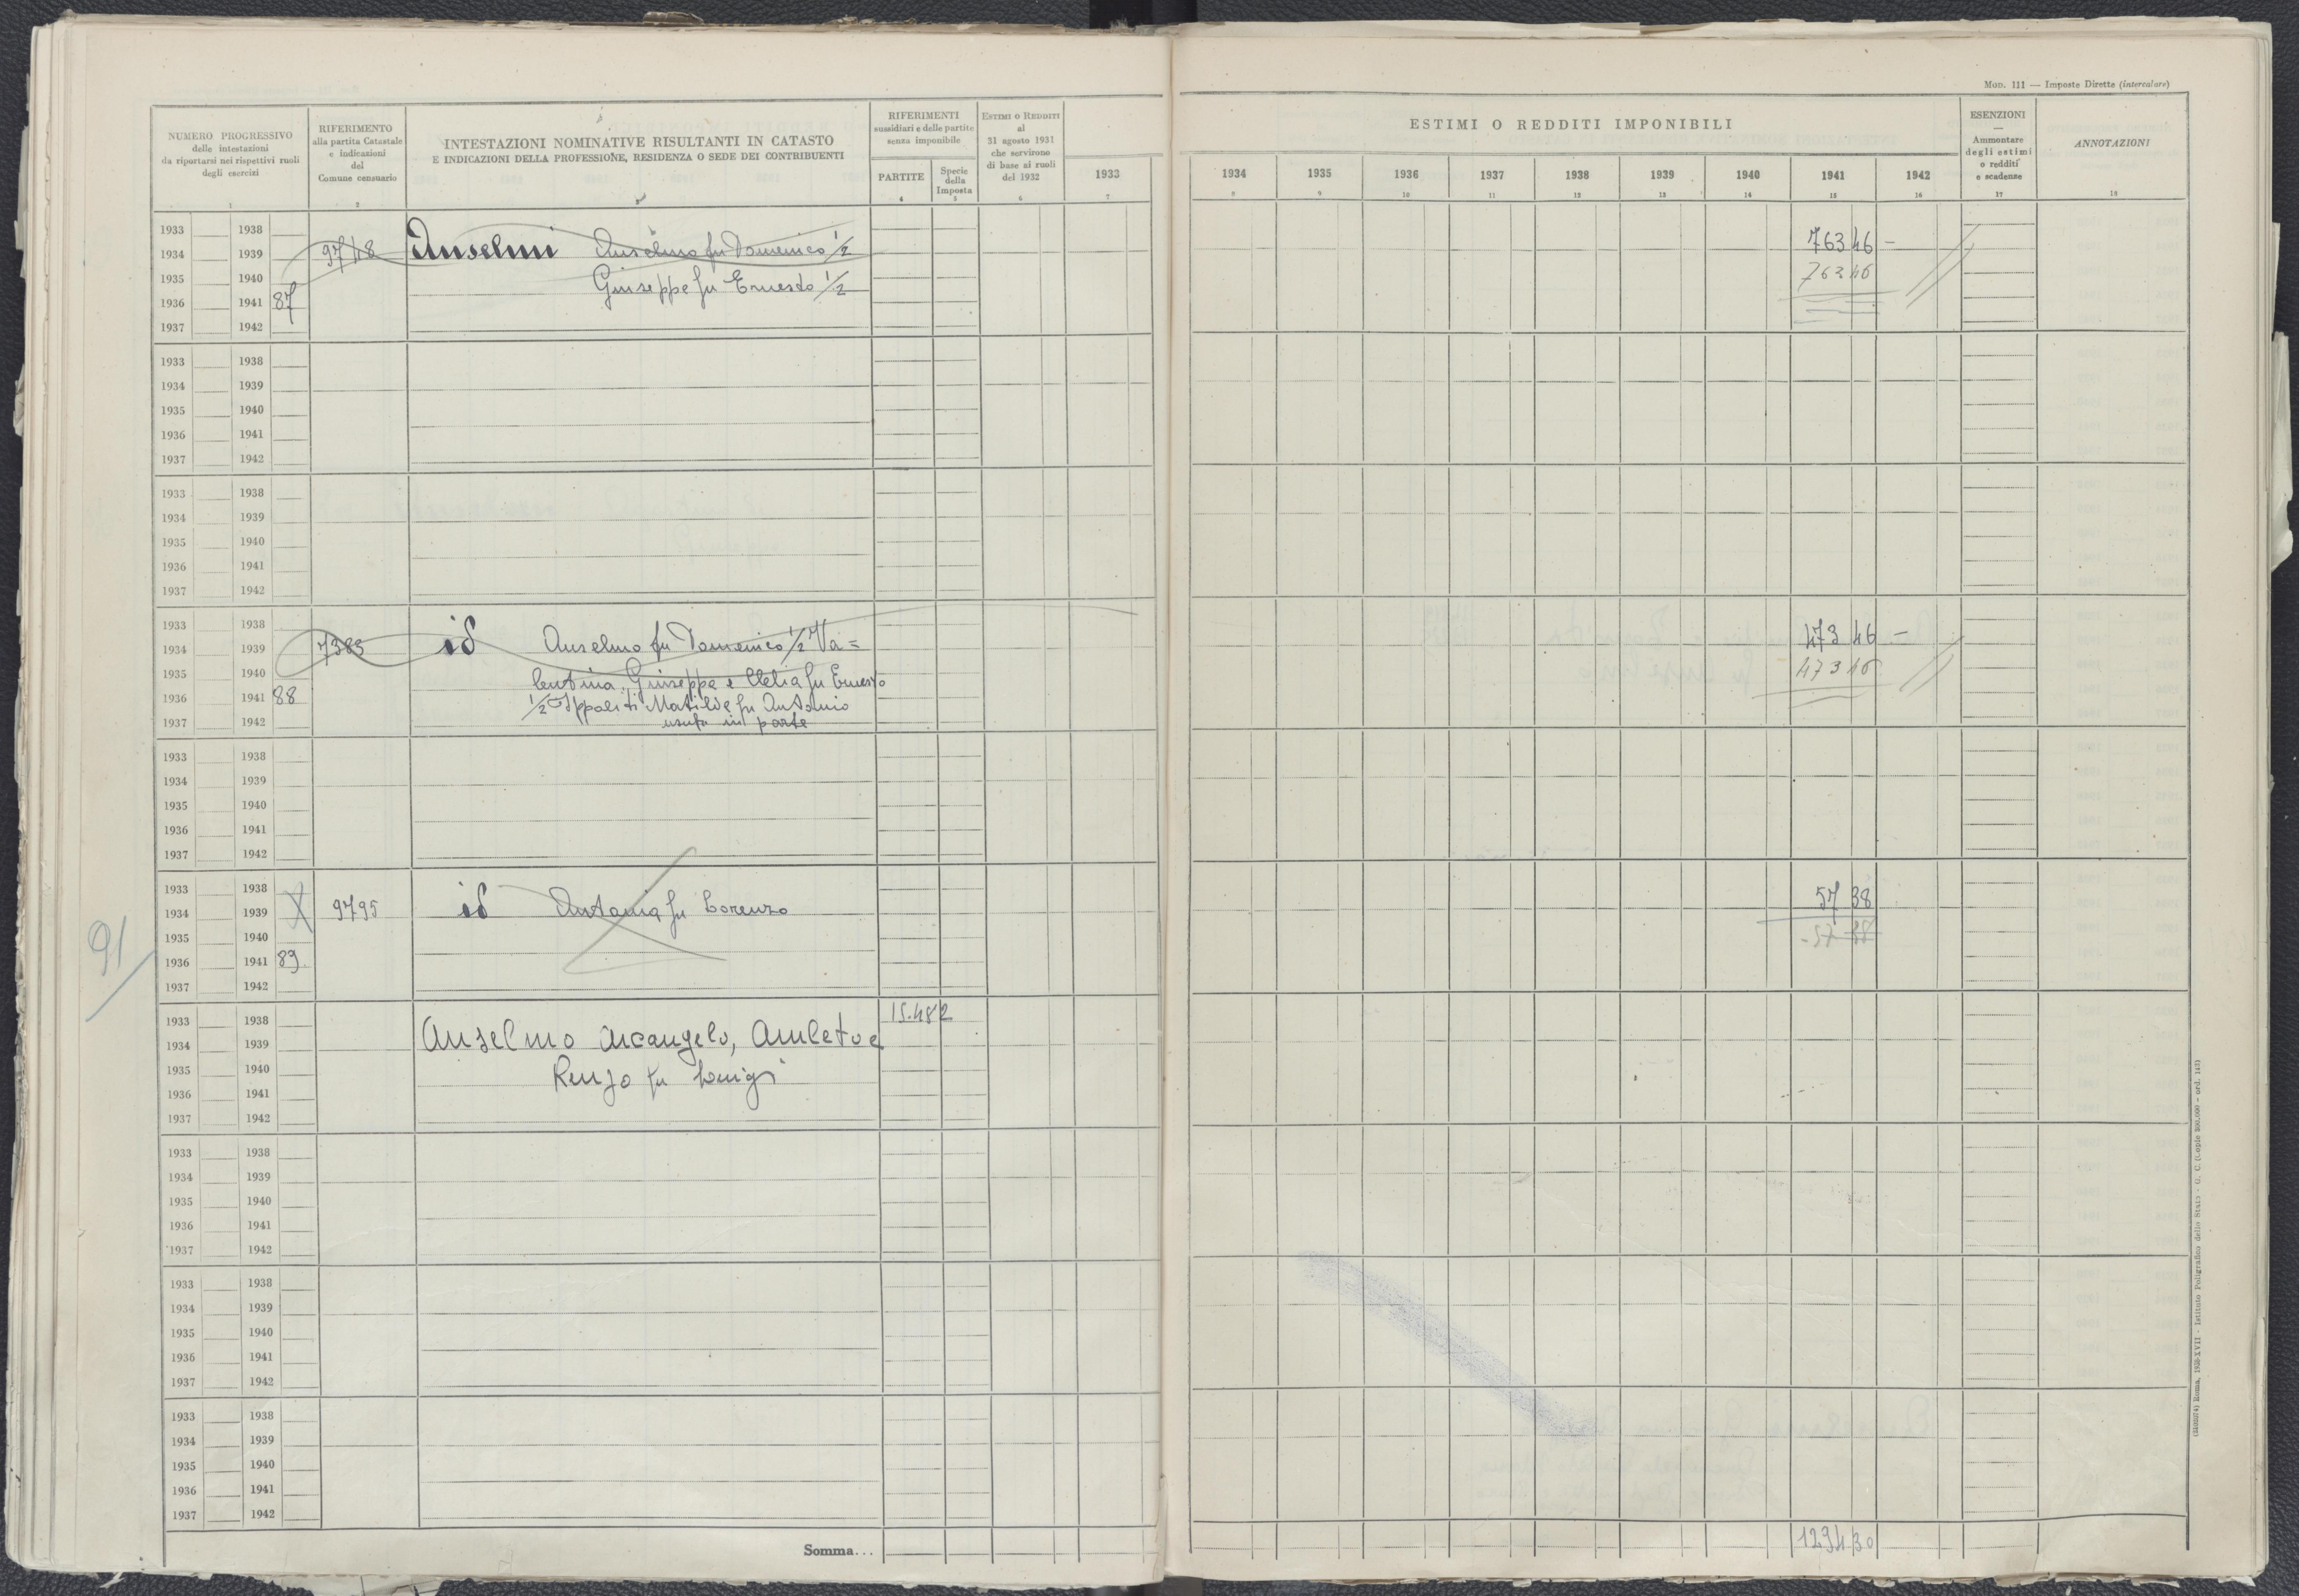 MOD. 111 — Imposte Dirette (intercalare)
NUMERO PROGRESSIVO
delle intestazioni
da riportarsi nei rispettivi ruoli
degli esercizi
1
RIFERIMENTO
alla partita Catastale
e indicazioni
del
Comune censuario
2
INTESTAZIONI NOMINATIVE RISULTANTI IN CATASTO
E INDICAZIONI DELLA PROFESSIONE, RESIDENZA O SEDE DEI CONTRIBUENTI
RIFERIMENTI
sussidiari e delle partite
senza imponibile
PARTITE
4
Specie
della
Imposta
5
ESTIMI O REDDITI
al
31 agosto 1931
che servirono
di base ai ruoli
del 1932
6
1933
7
ESTIMI O REDDITI IMPONIBILI
1934 1935 1936 1937 1938 1939 1940 1941 1942
8 9 10 11 12 13 14 15 16
ESENZIONI
—
Ammontare
degli estimi
o redditi
e scadenze
17
ANNOTAZIONI
18
1933 1938
1934 1939 9718 Anselmi Anselmo fu Domenico 1/2 763 46 –
1935 1940 Giuseppe fu Ernesto 1/2 763 46
1936 1941 87
1937 1942
1933 1938
1934 1939
1935 1940
1936 1941
1937 1942
1933 1938
1934 1939
1935 1940
1936 1941
1937 1942
1933 1938
1934 1939 7383 id Anselmo fu Domenico 1/2 Va= 473 46 –
1935 1940 lentina, Giuseppe e Clelia fu Ernesto 473 46
1936 1941 88 1/2 Ippoliti Matilde fu Antonio
1937 1942 usufr in parte
1933 1938
1934 1939
1935 1940
1936 1941
1937 1942
1933 1938
1934 1939 X 9795 id Antonia fu Lorenzo 57 38
1935 1940 57 38
91
1936 1941 89
1937 1942
1933 1938 15.482
1934 1939 Anselmo Arcangelo, Amleto e
1935 1940 Renzo fu Luigi
1936 1941
1937 1942
1933 1938
1934 1939
1935 1940
1936 1941
1937 1942
1933 1938
1934 1939
1935 1940
1936 1941
1937 1942
1933 1938
1934 1939
1935 1940
1936 1941
1937 1942
Somma... 1294 30
Roma, 1938-XVII - Istituto Poligrafico dello Stato - G. C.